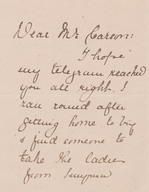 Dear Mr Carson:
I hope
my telegram reached
you all right. I
ran round after
getting home to try
& find someone to
take the ladies
from